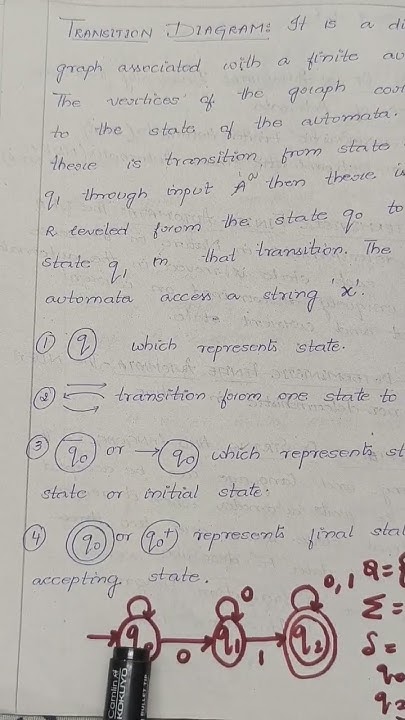 TRANSITION DIAGRAM: It is a di
graph associated with a finite au
The veortices of the goraph coor
to the state of the automata.
theore is transition, from state
q1 through input 'A' then theore is
R leveled forom the state q0 to
state q1 on that transition. The
automata access a string 'x'.
① q which represents state.
② transition forom one state to
③ q0 or → q0 which represents st
state or initial state:
④ q0 or q0+ represents final stat
accepting state.
0 0,1 Q = {
q1 q2 Σ =
0 1 δ =
q0
q2
Camlin
KOKUYO
BULLET TIP